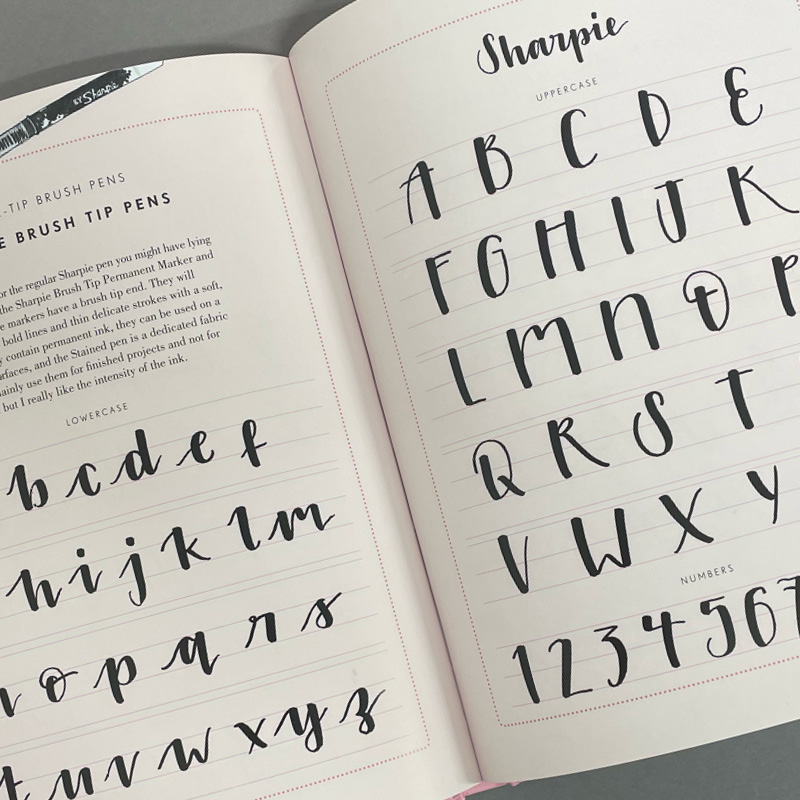 BY Sharpie
-TIP BRUSH PENS
E BRUSH TIP PENS
or the regular Sharpie pen you might have lying
the Sharpie Brush Tip Permanent Marker and
e markers have a brush tip end. They will
bold lines and thin delicate strokes with a soft,
y contain permanent ink, they can be used on a
rfaces, and the Stained pen is a dedicated fabric
ainly use them for finished projects and not for
but I really like the intensity of the ink.
LOWERCASE
b c d e f
h i j k l m
o p q r s
t u v w x y z
Sharpie
UPPERCASE
A B C D E
F G H I J K
L M N O P
Q R S T
V W X Y
NUMBERS
1 2 3 4 5 6 7